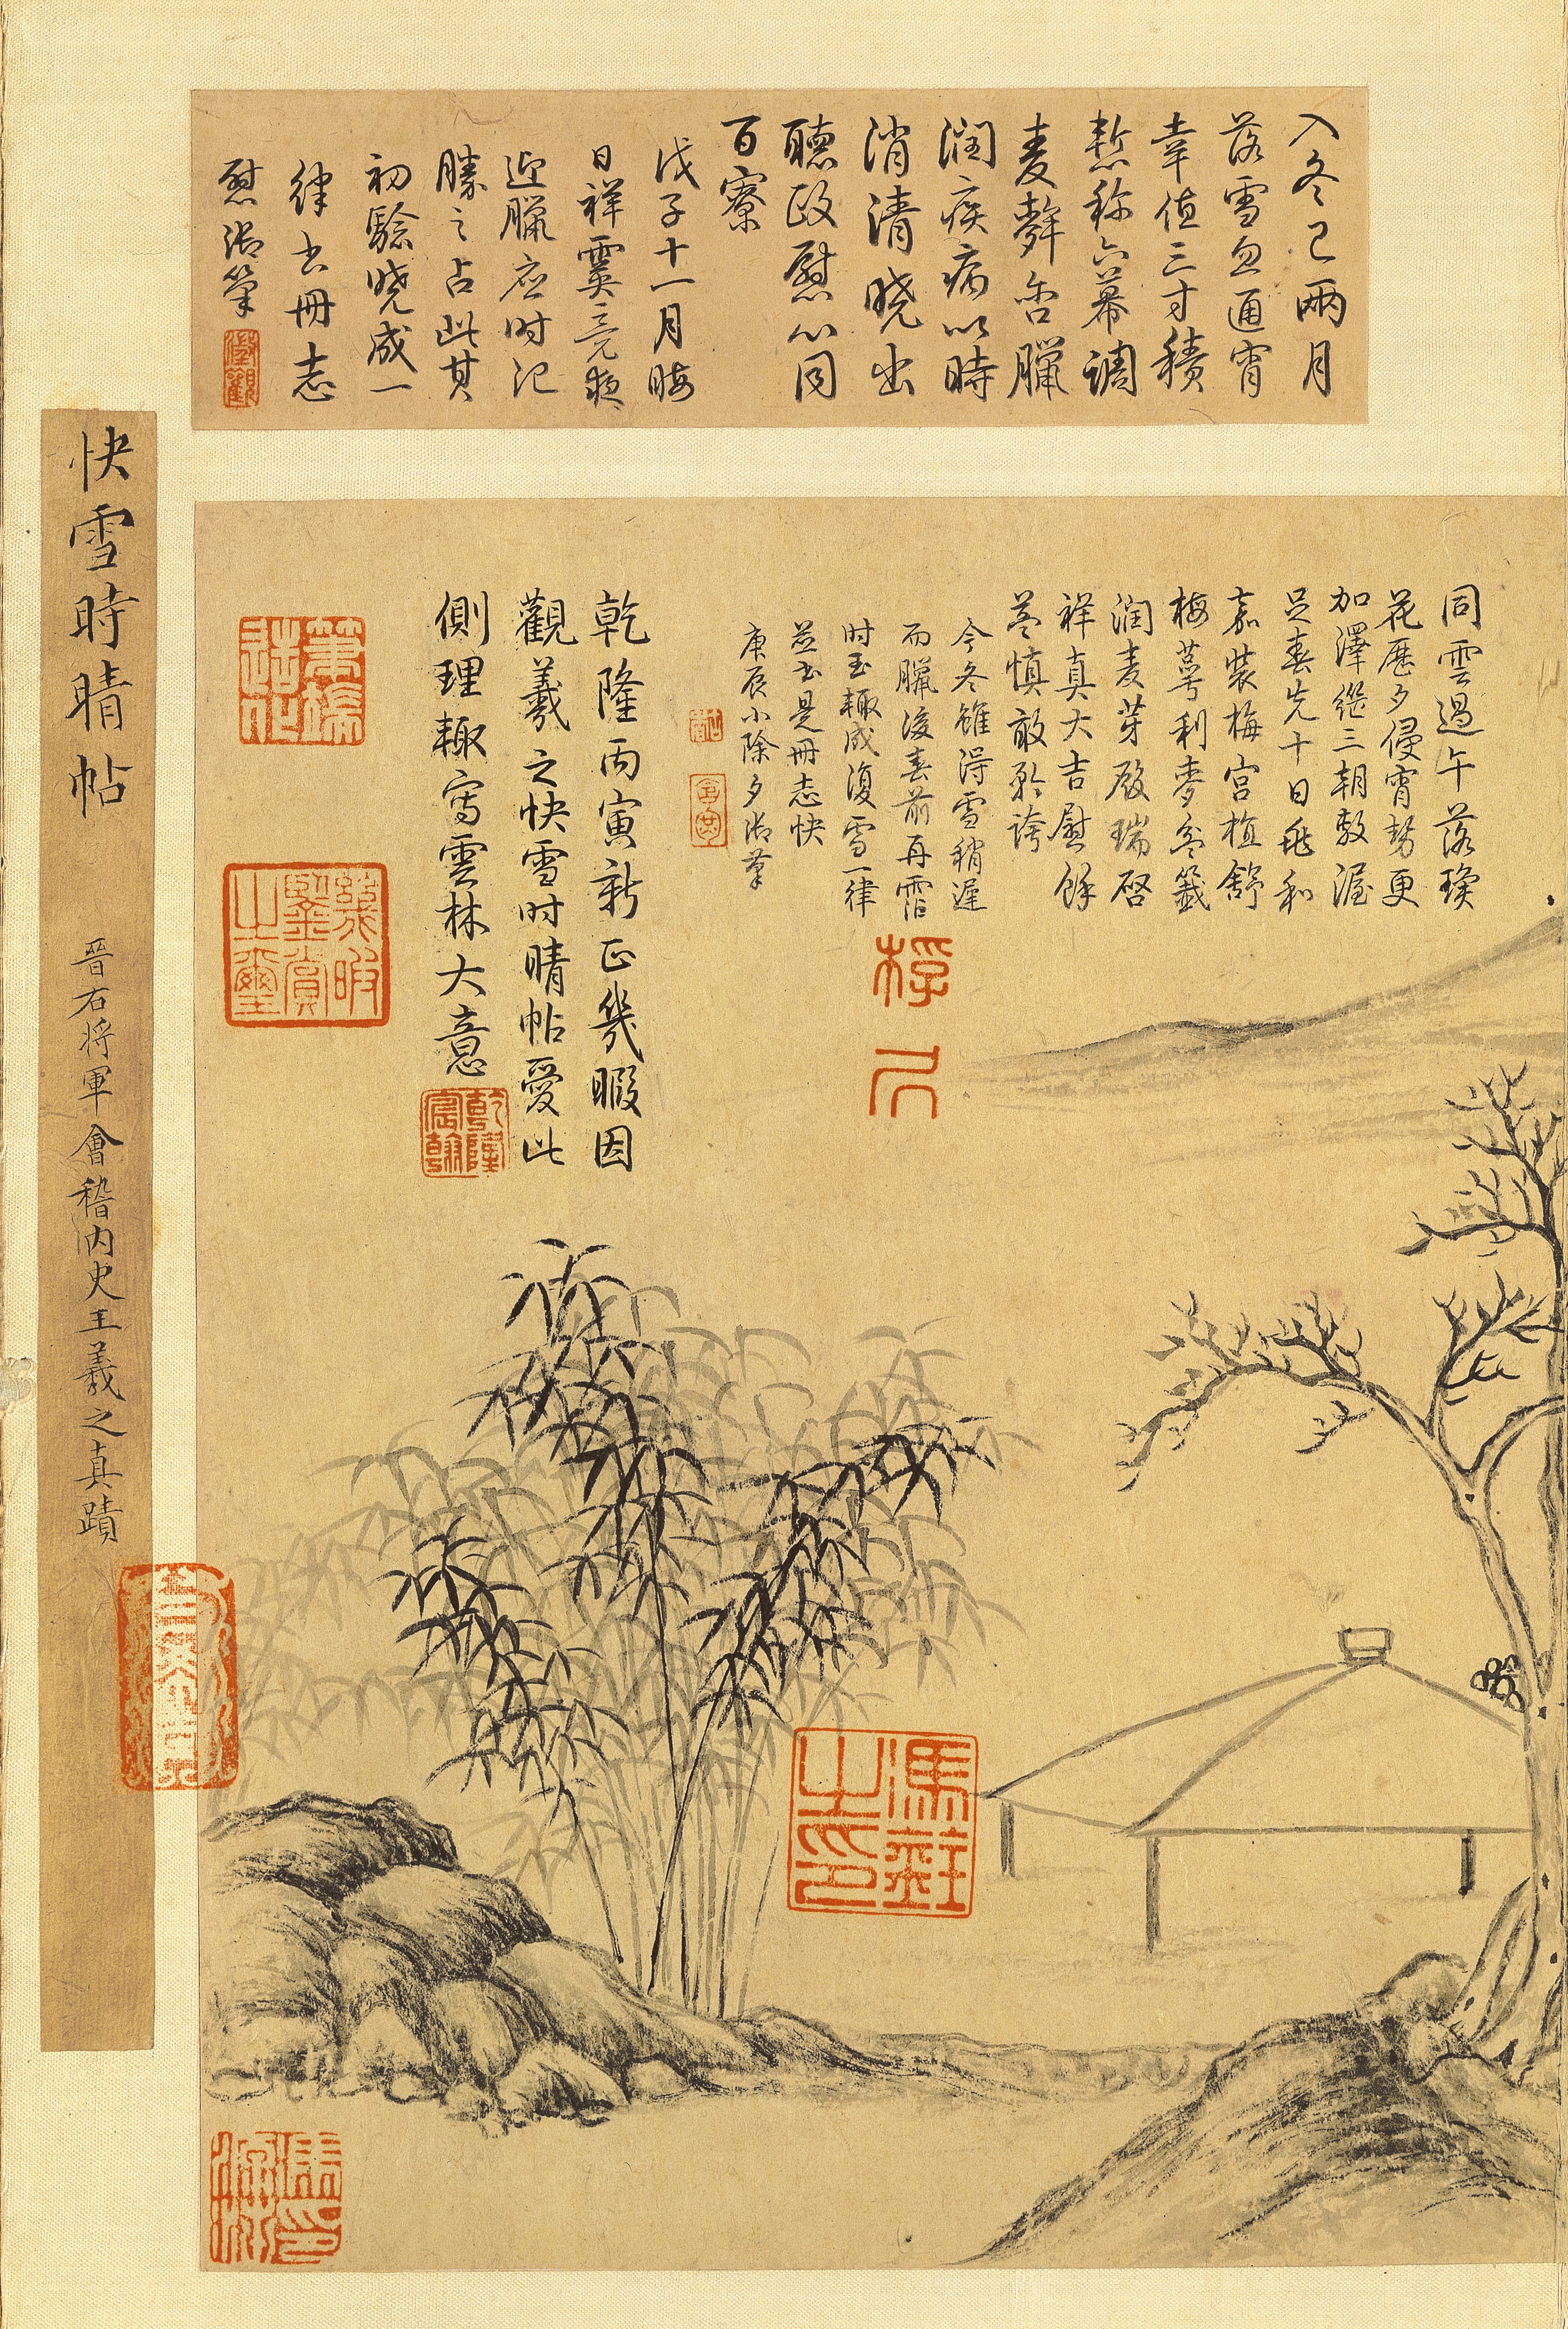 入冬已兩月
落雪忽通宵
幸值三寸積
慙稱六幕調
麦辫含臘
潤疾病以時
消清曉出
聽政慰心同
百寮
戊子十一月晦
日祥霙竟夜
迎臘应时汜
勝之占此其
初驗曉成一
律書冊志
慰御筆
同雲過午落瑛
花歷夕侵宵勢更
加澤繼三朝敷渥
足春先十日兆和
嘉裝梅宮植舒
梅萼利麥參籤
潤麦芽殷瑞啓
祥真大吉慰餘
益慎敢矜誇
今冬雖得雪稍遲
而臘後春前再霑
时玉輙成復雪一律
並書是冊志快
庚辰小除夕御筆
乾隆丙寅新正幾暇因
觀羲之快雪时晴帖愛此
側理輙寫雲林大意
乾隆宸翰
幾暇鑒賞之璽
快雪時晴帖
晉右將軍會稽内史王羲之真蹟